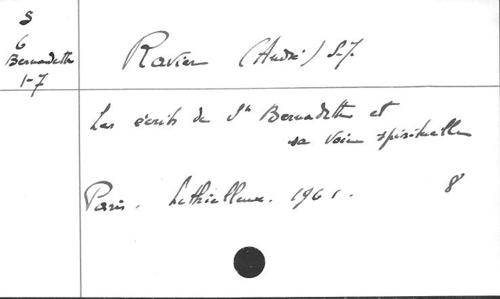 S
6
Bernadette
1-7
Ravier (André) S.J.
Les écrits de Ste Bernadette et
sa voie spirituelle
Paris. Lethielleux. 1961.
8